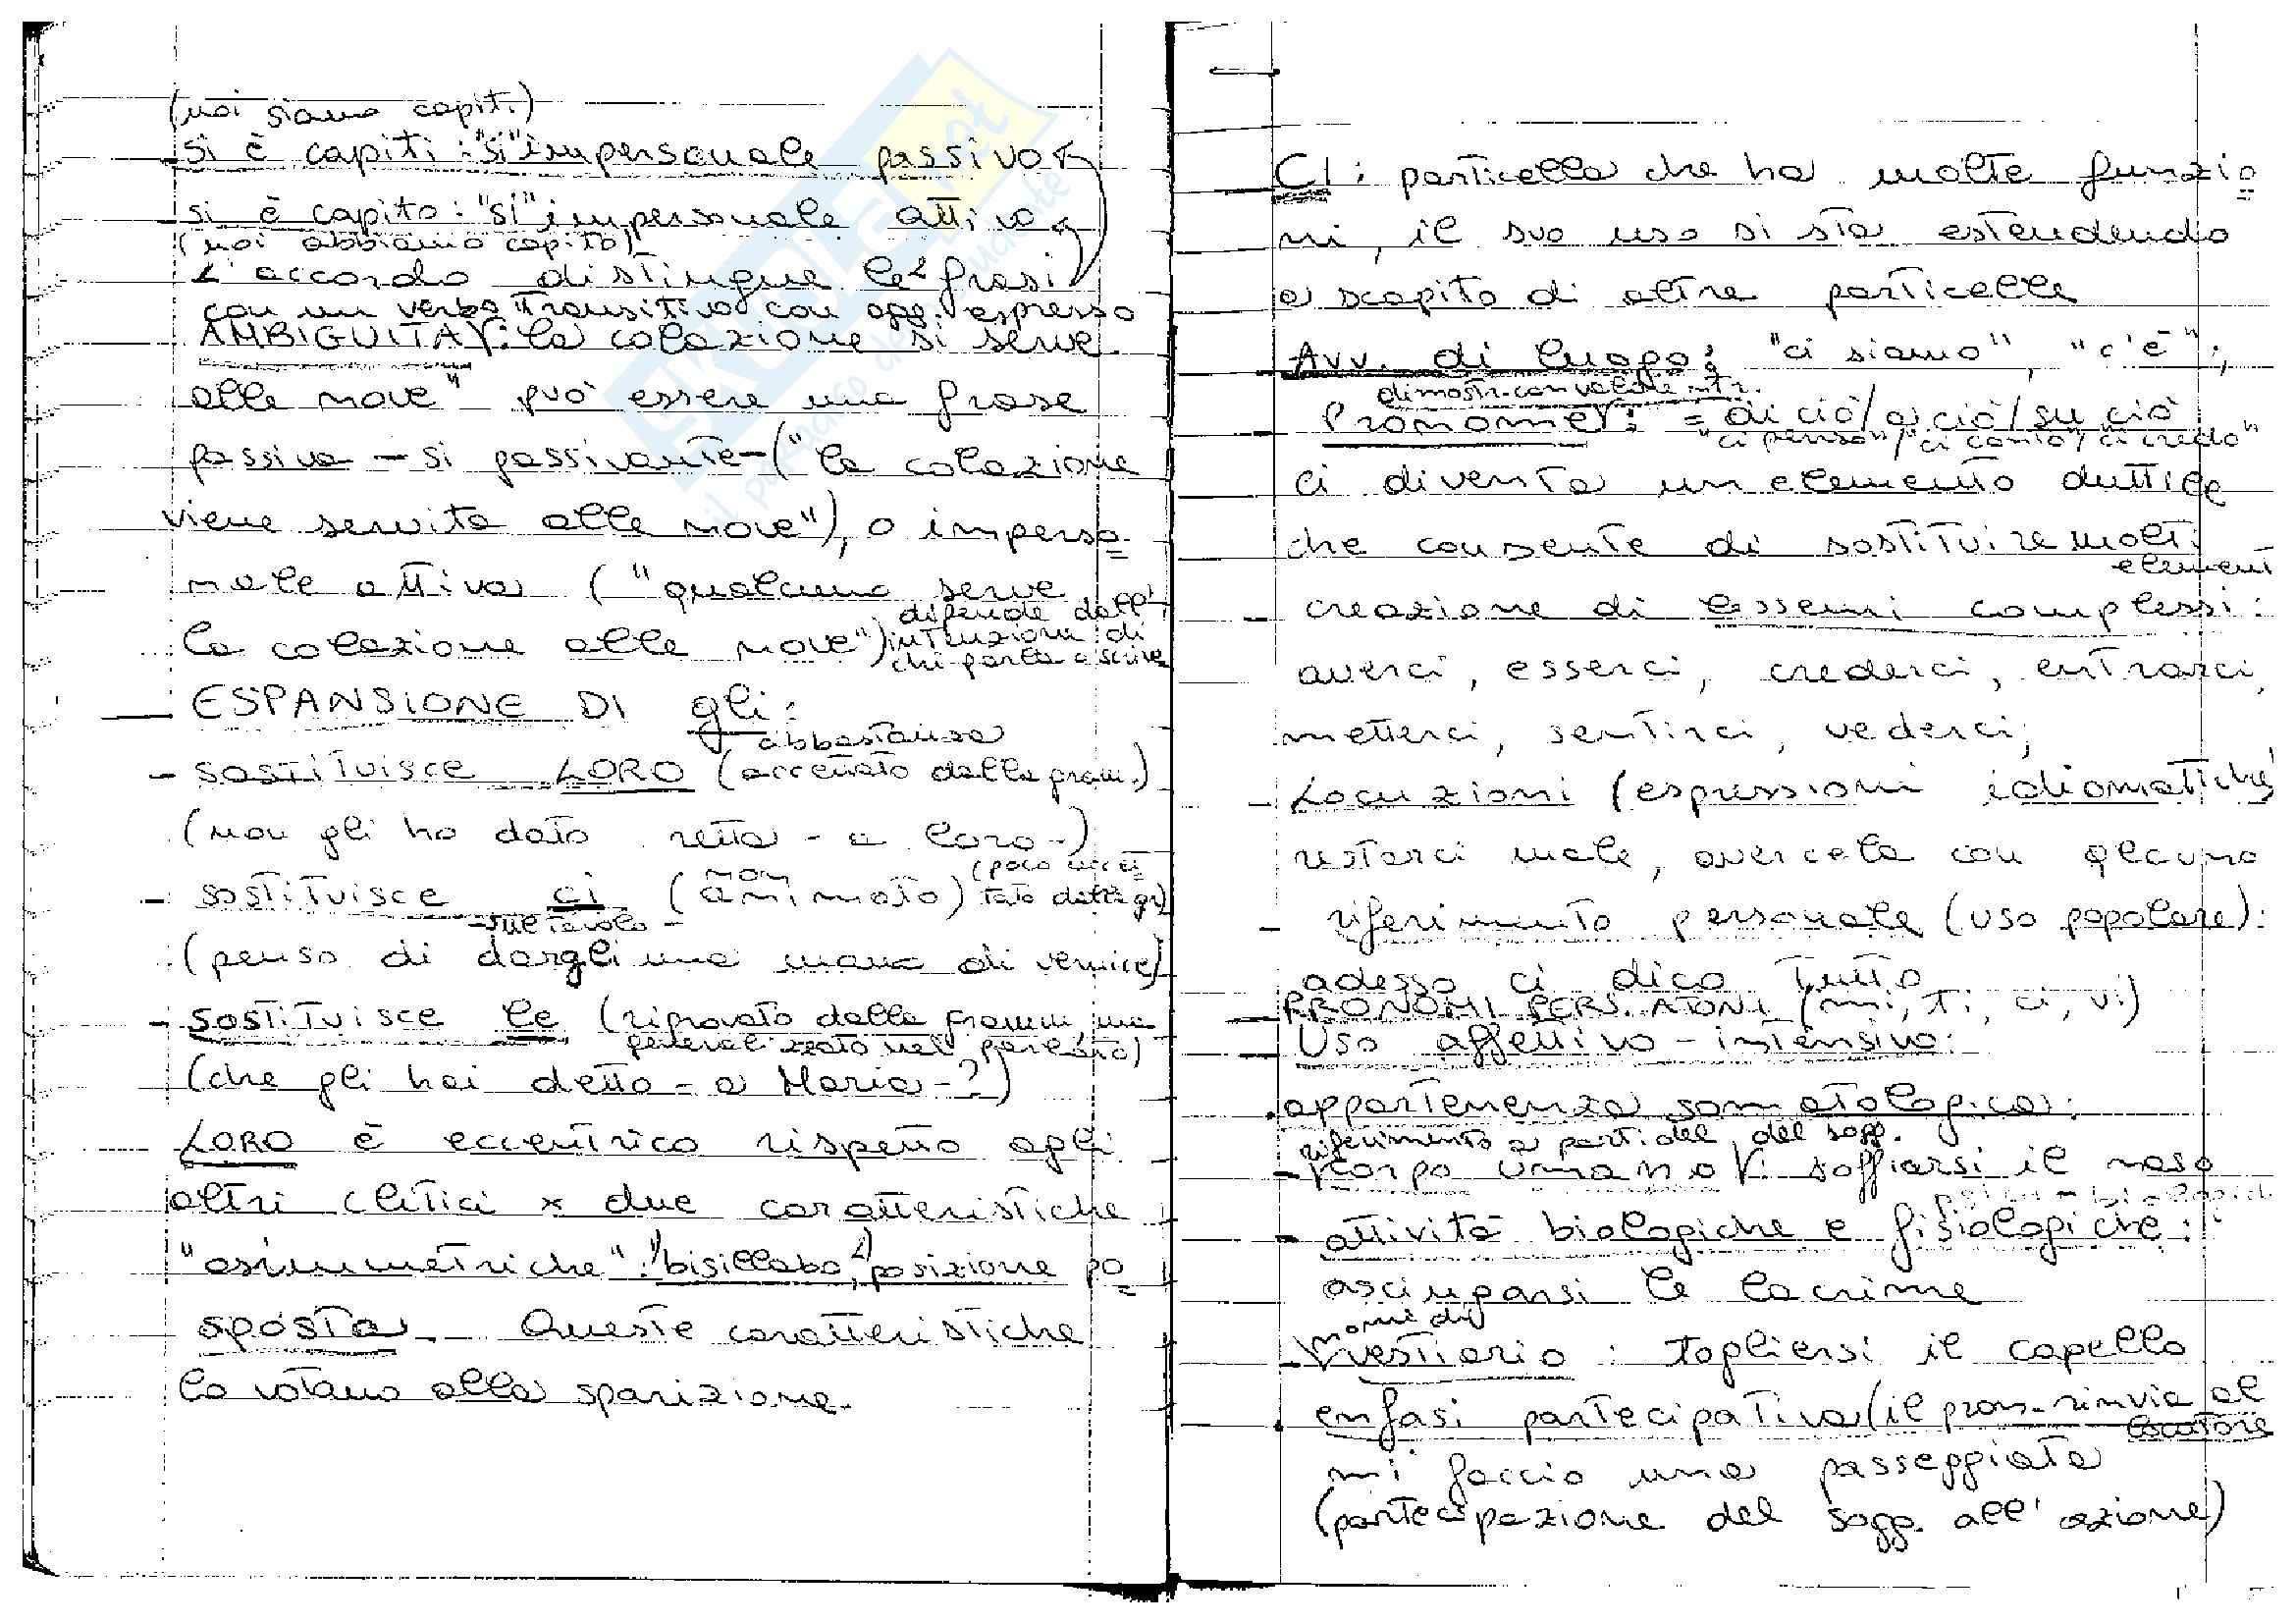 (noi siamo capiti)
si è capiti: "si" impersonale passivo
si è capito: "si" impersonale attivo
(noi abbiamo capito)
L'accordo distingue le 2 frasi
con un verbo transitivo con ogg. espresso
AMBIGUITÀ: "la colazione si serve
alle nove" può essere una frase
passiva - si passivante - ("la colazione
viene servita alle nove"), o imperso=
nale attiva ("qualcuno serve
la colazione alle nove") dipende dall'
intenzione di
chi parla o scrive
ESPANSIONE DI gli:
abbastanza
- SOSTITUISCE LORO (accettato dalla gram.)
(non gli ho dato retta - a loro -)
non (poco accet
- SOSTITUISCE ci (animato) tato dalla gr)
- sul tavolo -
(penso di dargli una mano di vernice)
- SOSTITUISCE le (riprovato dalla gramm, ma
generalizzato nel parlato)
(che gli hai detto - a Maria - ?)
LORO è eccentrico rispetto agli
altri clitici x due caratteristiche
"asimmetriche": 1) bisillabo, 2) posizione po=
sposta. Queste caratteristiche
lo votano alla sparizione.
CI: particella che ha molte funzio=
ni, il suo uso si sta estendendo
a scapito di altre particelle
Avv. di luogo: "ci siamo", "c'è";
dimostr. con valore ntr.
Pronome: = di ciò/a ciò/su ciò
"ci penso"/"ci conto"/"ci credo"
ci diventa un elemento duttile
che consente di sostituire molti
elementi
- creazione di lessemi complessi:
averci, esserci, crederci, entrarci,
metterci, sentirci, vederci;
- Locuzioni (espressioni idiomatiche)
restarci male, avercela con qlcuno
- riferimento personale (uso popolare):
adesso ci dico tutto
- PRONOMI PERS. ATONI (mi, ti, ci, vi)
- Uso affettivo-intensivo:
• appartenenza somatologica:
riferimento a parti del, del sogg.
- corpo umano: soffiarsi il naso
- attività biologiche e fisiologiche:
asciugarsi le lacrime
nomi di
- vestiario: togliersi il capello
• enfasi partecipativa (il pron. rinvia al
locutore
mi faccio una passeggiata
(partecipazione del sogg. all'azione)